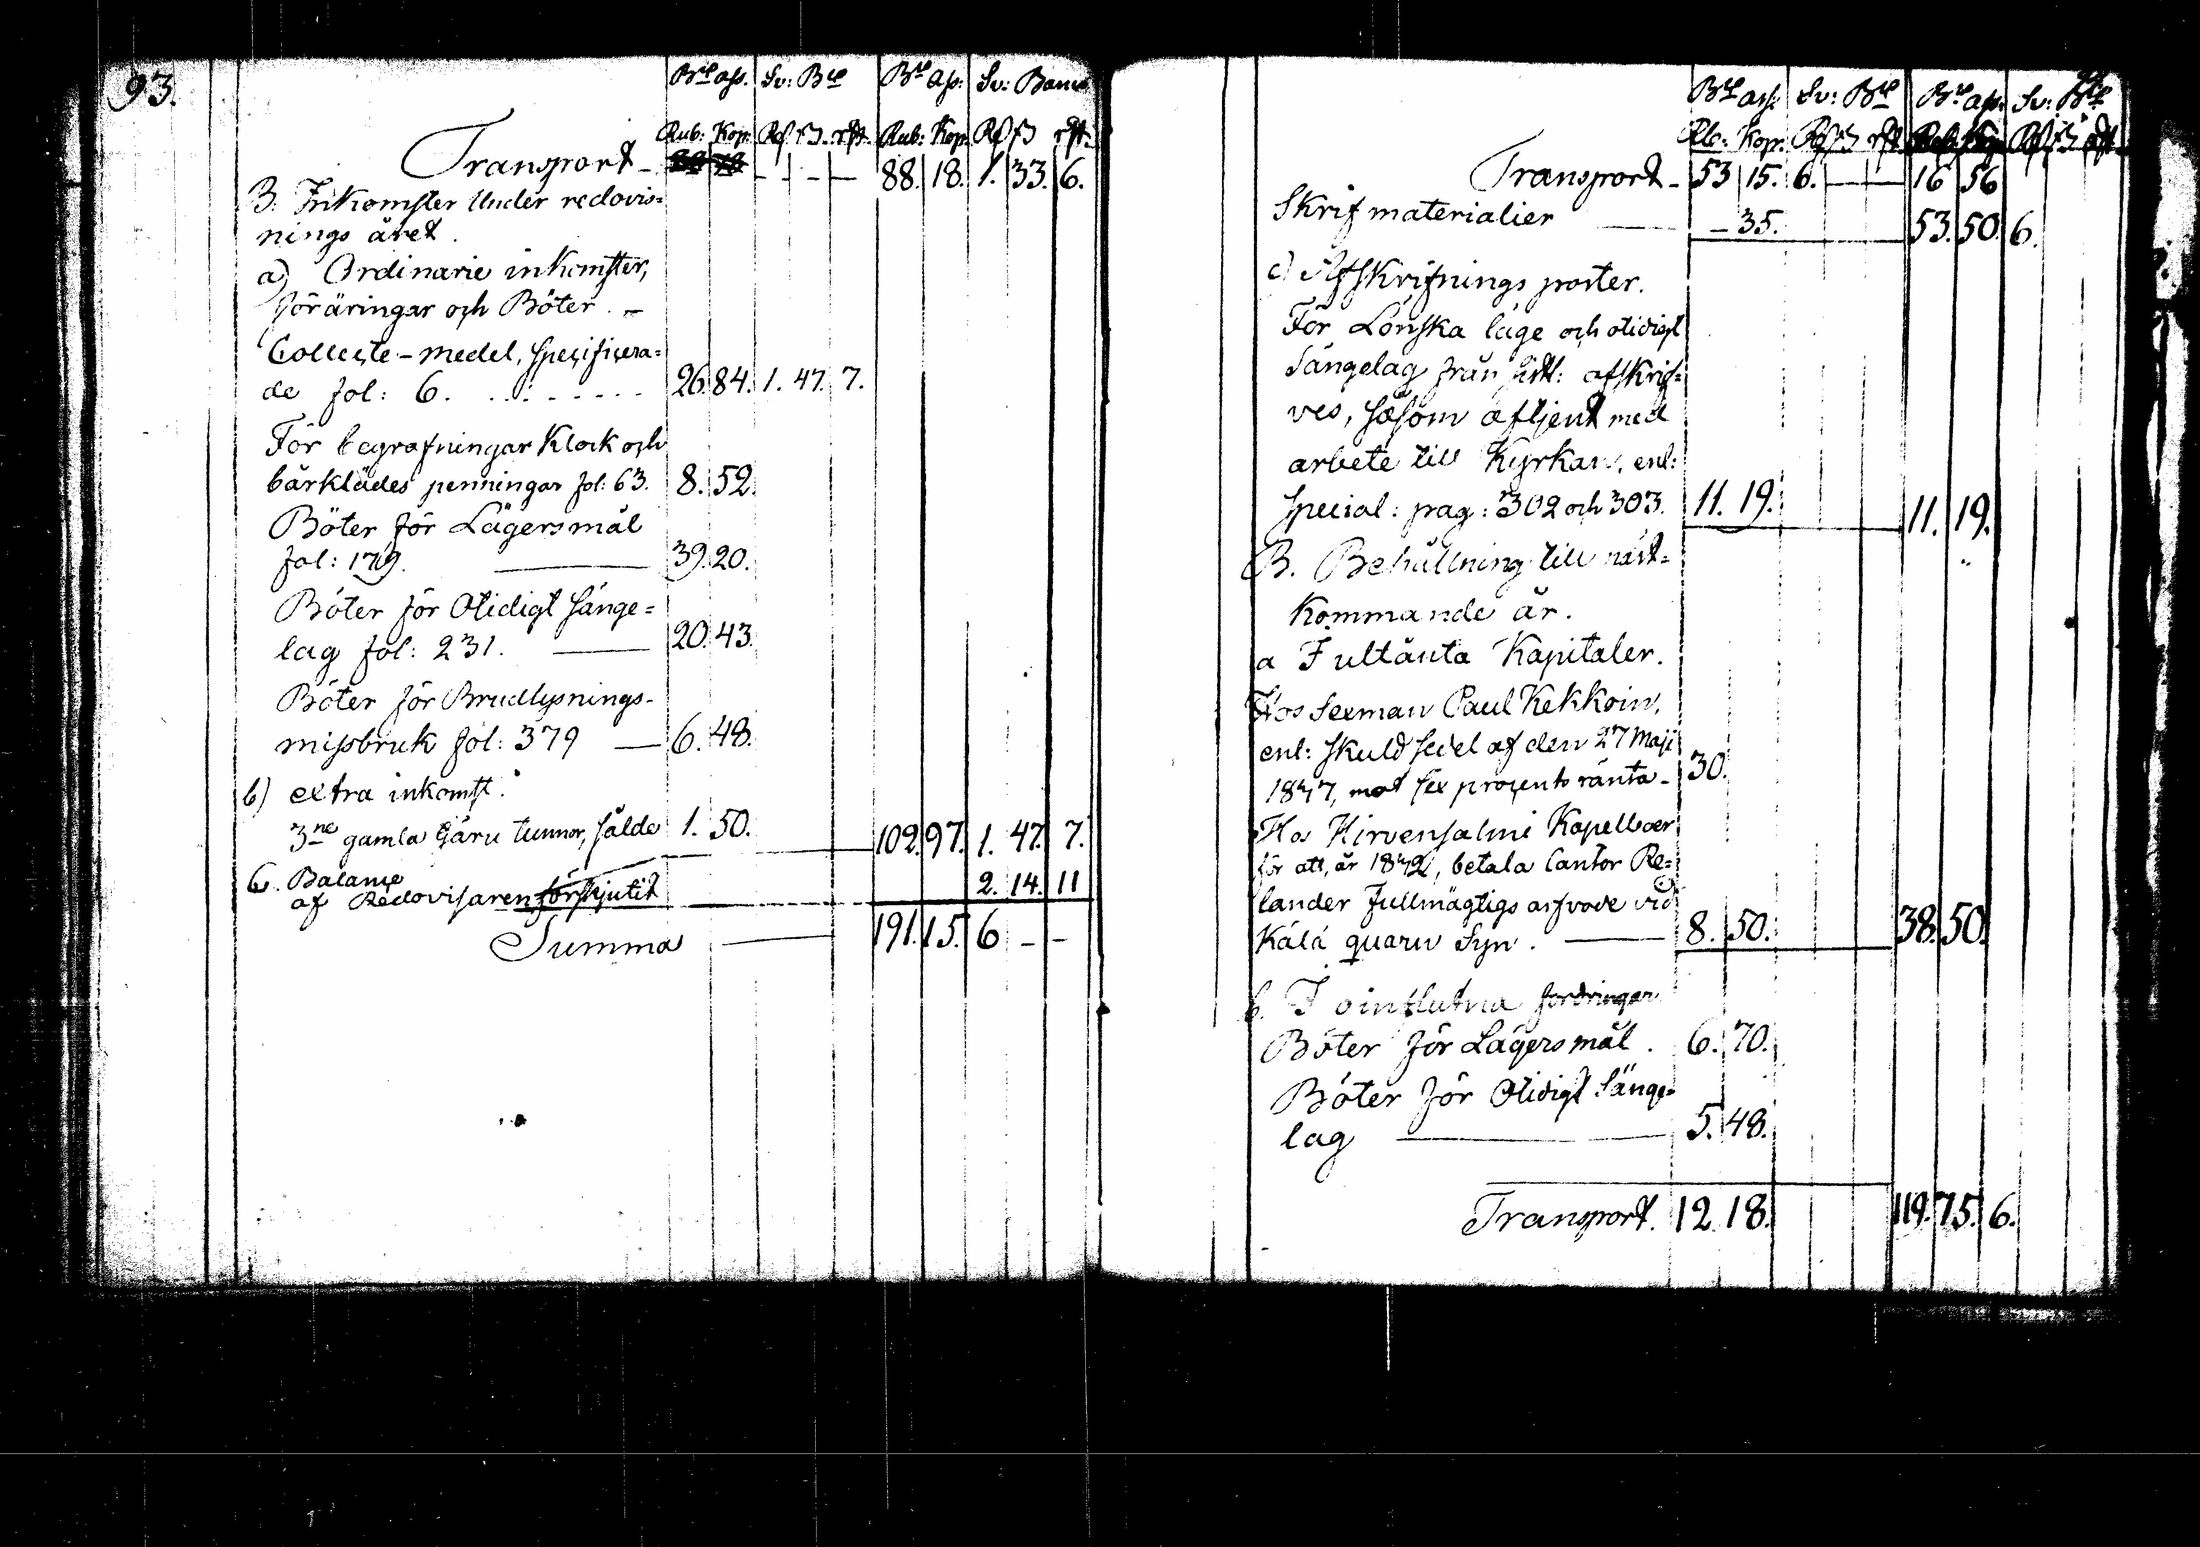 93.
Bco ass. Sv: Bco Bco ass: Sv: Banco
Rub: Kop. Rd ß. rst. Rub: Kop. Rd ß rst.
Transport - - - - - 88. 18. 1. 33. 6.
B. Inkomster Under redovis=
nings året.
a) Ordinarie inkomster,
föräringar och Böter. -
Collecte-medel, specificera=
de fol: 6. . . . . . . . . 26. 84. 1. 47. 7.
För begrafningar Klock och
bårklädes penningar fol: 63. 8. 52.
Böter för Lägersmål
fol: 179. 39. 20.
Böter för Otidigt sänge=
lag fol: 231. 20. 43.
Böter för Brudlysnings-
missbruk fol: 379 — 6. 48.
b) extra inkomst.
3ne gamla tunnor, sålde 1. 50. 102. 97. 1. 47. 7.
C. Balance
af Redovisaren förskjutit 2. 14. 11
Summa 191. 15. 6 - -
Bco ass: Sv: Bco Bco ass. Sv: Bco
Rb: Kop. Rd ß rst.
Transport - 53 15. 6. — 16 56
Skrifmaterialier — - 35. 53. 50. 6.
c) Afskrifnings poster.
För Lönska läge och otidigt
Sängelag från sidst: afskrif=
ves, såsom aftjent med
arbete till Kyrkan, enl:
special: pag: 302 och 303. 11. 19. 11. 19.
B. Behållning till näst=
Kommande år.
a I utlånta Kapitaler.
Hos Sexman Paul Kekkoin,
enl: skuld sedel af den 27 Maji
1847, mot sex procents ränta - 30.
Hos Hirvensalmi Kapellboer
för att, år 1842, betala Cantor Re=
lander fullmägtigs arfvode vid
quarn Syn. — 8. 50. 38. 50.
b. I oinflutna fordringar
Böter för Lägersmål. 6. 70.
Böter för Otidigt Sänge=
lag — 5. 48.
Transport. 12 18. 119. 75. 6.